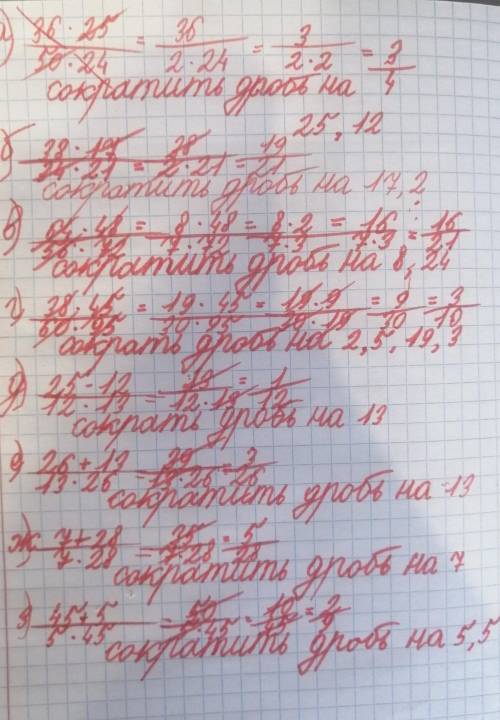 а) 36·25/50·24 = 36/2·24 = 3/2·2 = 3/4
сократить дробь на
25, 12
б) 38·17/34·21 = 38/2·21 = 19/21
сократить дробь на 17, 2
в) 64·48/ = 8·48/ = 8·2/7·3 = 16/7·3 = 16/21
сократить дробь на 8, 24
г) 38·45/50·95 = 19·45/ = = 9/ = 3/10
сократить дробь на 2, 5, 19, 3
д) 25-12/12·13 = 13/12·13 = 1/12
сократь дробь на 13
е) 26+13/13·26 = 39/13·26 = 3/26
сократить дробь на 13
ж) 7+28/7·28 = 35/7·28 = 5/28
сократить дробь на 7
з) 45+5/5·45 = 50/5·45 = 10/45 = 2/9
сократить дробь на 5,5